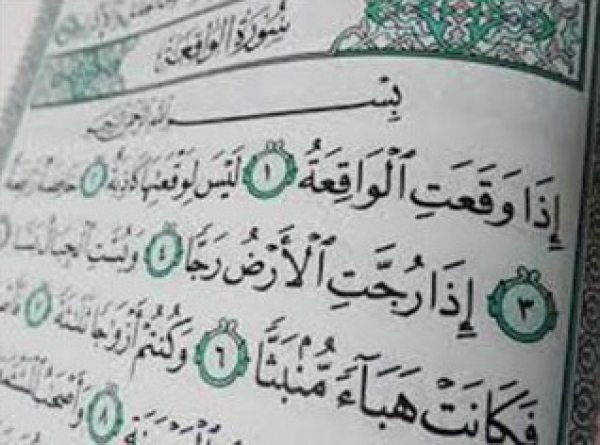 سُورَةُ الوَاقِعَةِ
بِسْمِ اللَّهِ الرَّحْمَٰنِ الرَّحِيمِ
إِذَا وَقَعَتِ ٱلْوَاقِعَةُ ١ لَيْسَ لِوَقْعَتِهَا كَاذِبَةٌ ٢ خَافِضَةٌ رَّافِعَةٌ
٣ إِذَا رُجَّتِ ٱلْأَرْضُ رَجًّا ٤ وَبُسَّتِ ٱلْجِبَالُ بَسًّا
فَكَانَتْ هَبَآءً مُّنۢبَثًّا ٦ وَكُنتُمْ أَزْوَٰجًا ثَلَٰثَةً ٧
٨